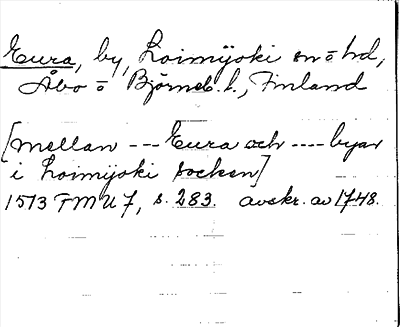 Eura, by, Loimijoki sn o hd,
Åbo o Björneb. l., Finland
[mellan --- Eura och ---- byar
i Loimijoki socken]
1513 FMU 7, s. 283. avskr. av 1748.